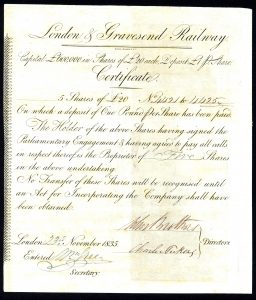 London & Gravesend Railway.
Capital £600,000 in Shares of £20 each, Deposit £1 pr. Share
Certificate.
5 Shares of £20 No 4421 to 4425
On which a deposit of One Pound Pr Share has been paid.
The Holder of the above Shares having signed the
Parliamentary Engagement & having agreed to pay all calls
in respect thereof is the Proprietor of Five Shares
in the above undertaking.
No Transfer of these Shares will be recognised until
an Act for Incorporating the Company shall have
been obtained.
Directors
London 23 November 1835
Charles
Entered
Secretary